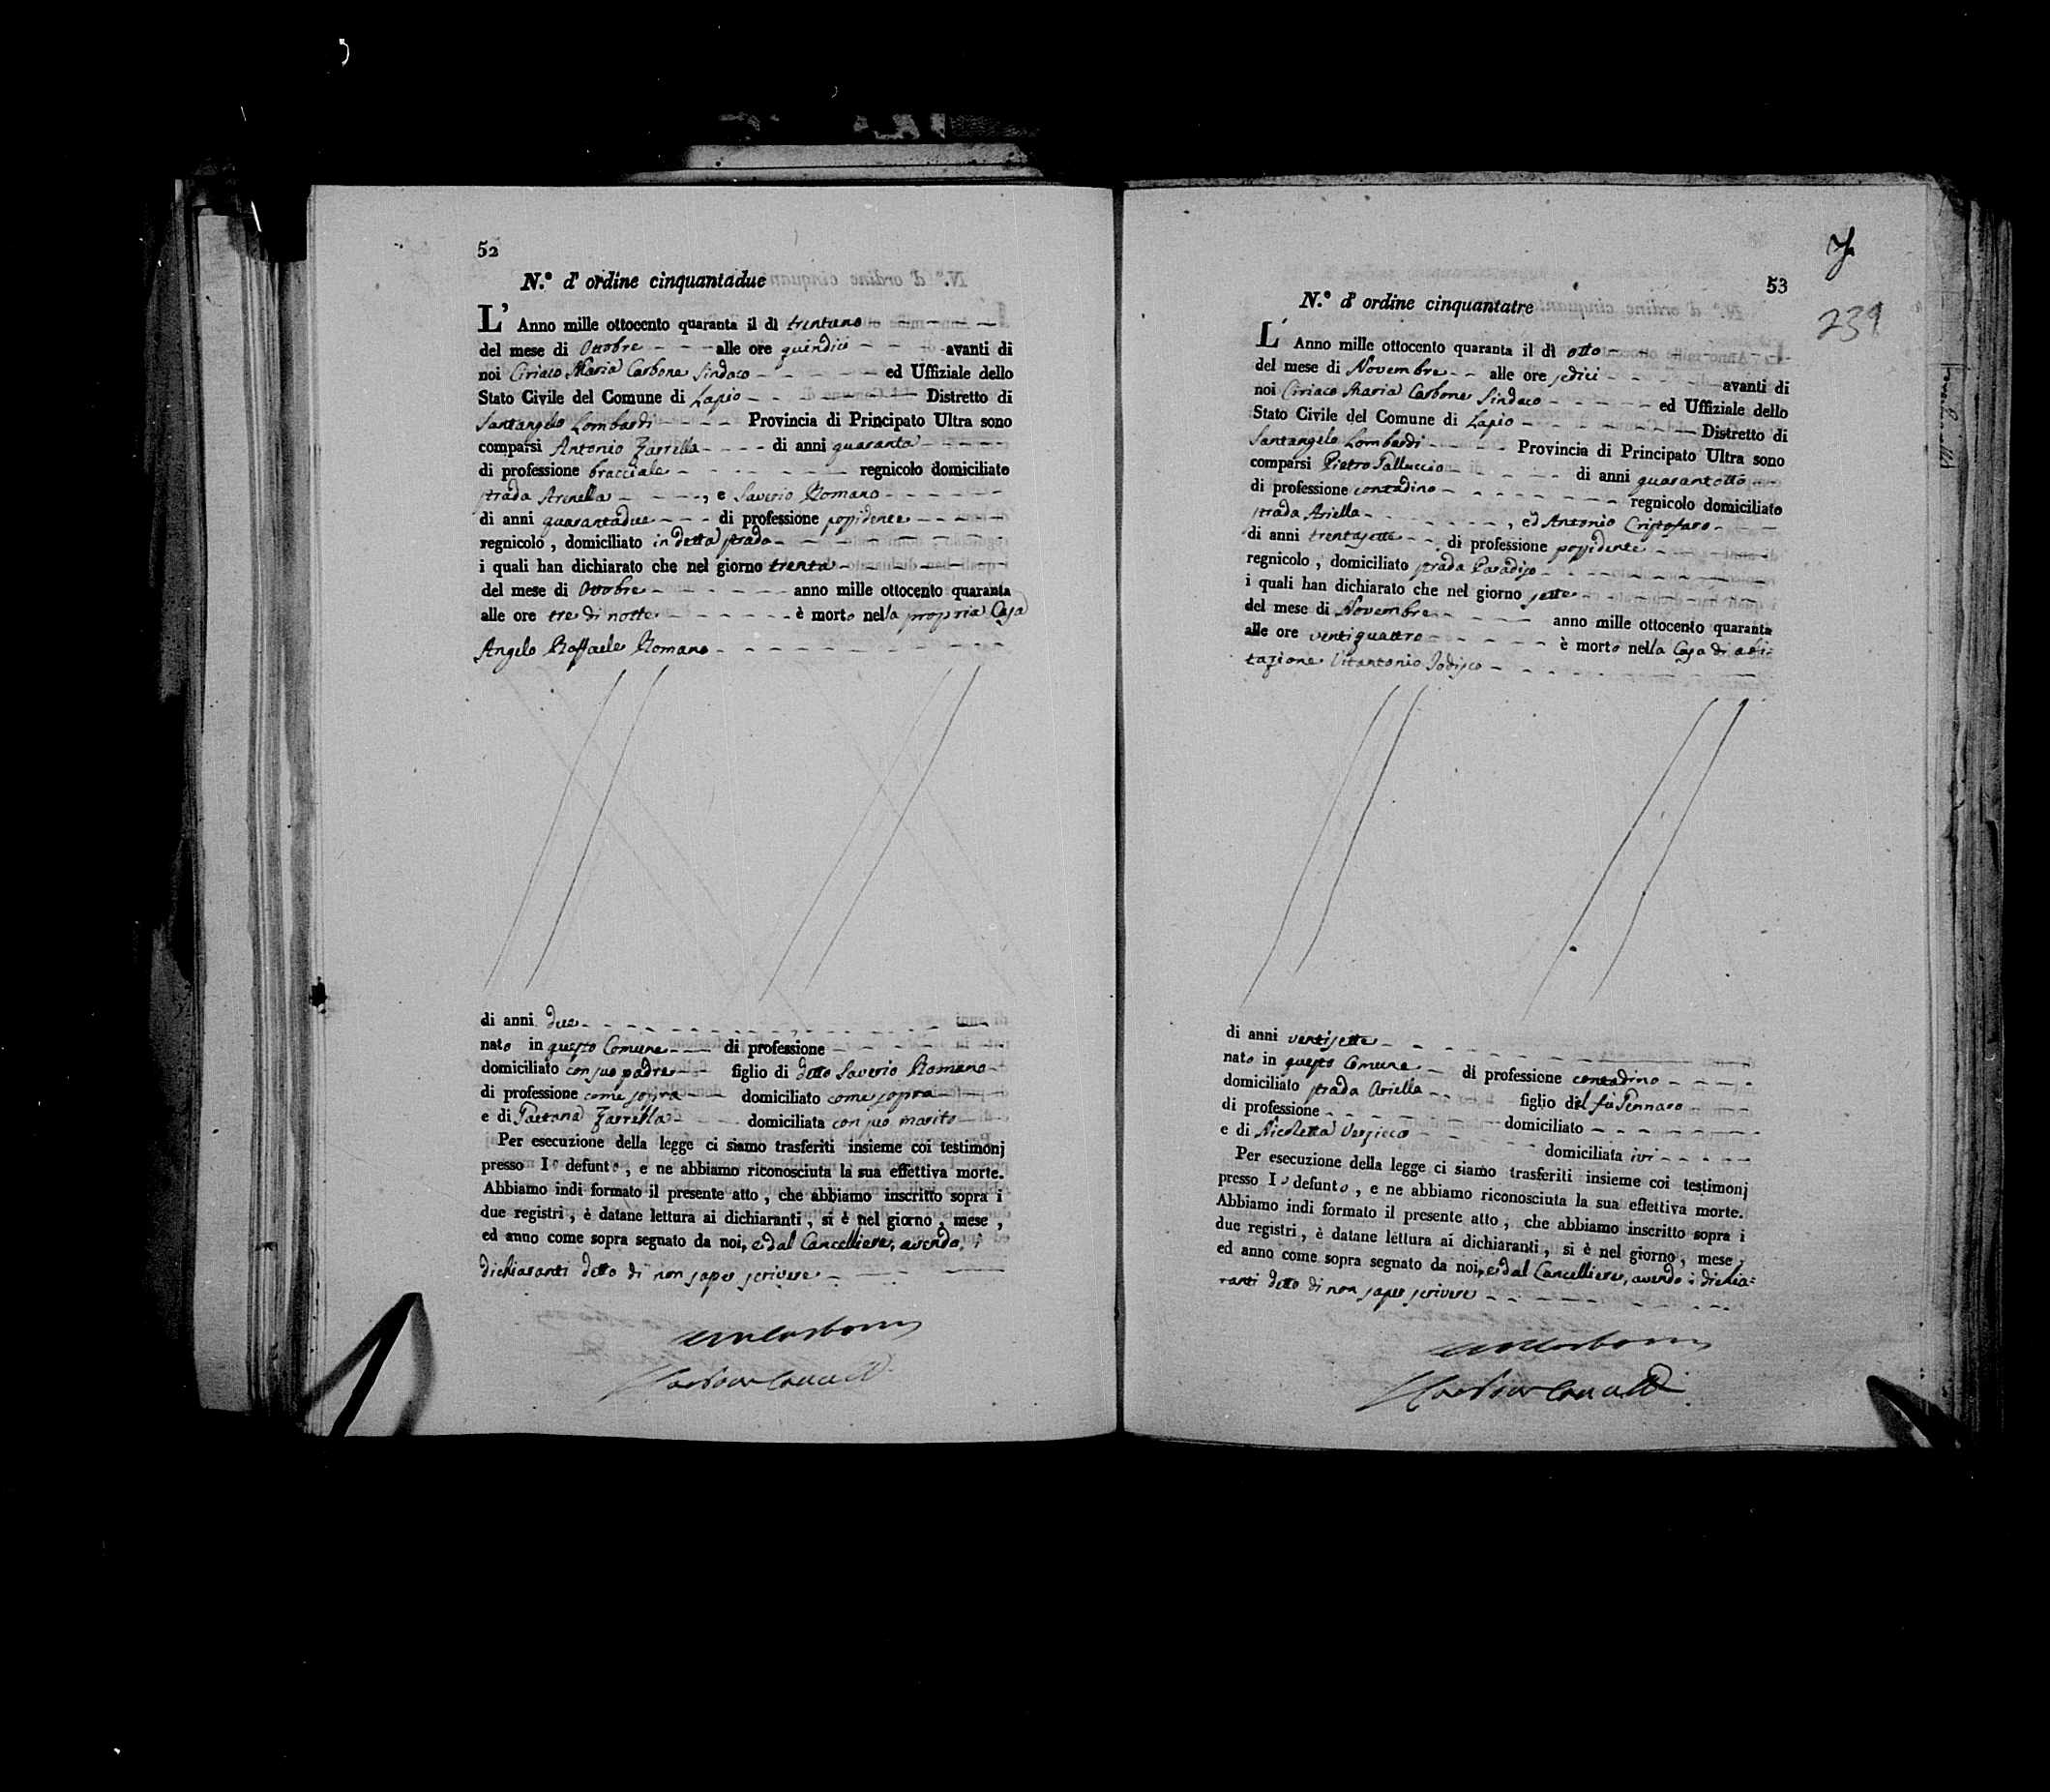 52
N.º d' ordine cinquantadue
L' Anno mille ottocento quaranta il dì trentuno
del mese di Ottobre alle ore quindici avanti di
noi Ciriaco Maria Carbone Sindaco ed Uffiziale dello
Stato Civile del Comune di Lapio Distretto di
Santangelo Lombardi Provincia di Principato Ultra sono
comparsi Antonio Zarrella di anni quaranta
di professione bracciale regnicolo domiciliato
strada Arenella , e Saverio Romano
di anni quarantadue di professione possidente
regnicolo , domiciliato in detta strada
i quali han dichiarato che nel giorno trenta
del mese di Ottobre anno mille ottocento quaranta
alle ore tre di notte è morto nella propria Casa
Angelo Raffaele Romano
di anni due
nato in questo Comune di professione
domiciliato con suo padre figlio di detto Saverio Romano
di professione come sopra domiciliato come sopra
e di Gaetana Zarrella domiciliata con suo marito
Per esecuzione della legge ci siamo trasferiti insieme coi testimonj
presso lo defunto , e ne abbiamo riconosciuta la sua effettiva morte.
Abbiamo indi formato il presente atto , che abbiamo inscritto sopra i
due registri , è datane lettura ai dichiaranti , si è nel giorno , mese ,
ed anno come sopra segnato da noi, e dal Cancelliere, avendo i
dichiaranti detto di non saper scrivere
53
239
N.º d' ordine cinquantatre
L' Anno mille ottocento quaranta il dì otto
del mese di Novembre alle ore sedici avanti di
noi Ciriaco Maria Carbone Sindaco ed Uffiziale dello
Stato Civile del Comune di Lapio Distretto di
Santangelo Lombardi Provincia di Principato Ultra sono
comparsi Pietro Galluccio di anni quarantotto
di professione contadino regnicolo domiciliato
strada Ariella , ed Antonio Cristofaro
di anni trentasette di professione possidente
regnicolo , domiciliato strada Paradiso
i quali han dichiarato che nel giorno sette
del mese di Novembre anno mille ottocento quaranta
alle ore ventiquattro è morto nella Casa di abi=
tazione Vitantonio Iodisco
di anni ventisette
nato in questo Comune di professione contadino
domiciliato strada Ariella figlio del fù Gennaro
di professione domiciliato
e di Nicoletta domiciliata ivi
Per esecuzione della legge ci siamo trasferiti insieme coi testimonj
presso lo defunto , e ne abbiamo riconosciuta la sua effettiva morte.
Abbiamo indi formato il presente atto , che abbiamo inscritto sopra i
due registri , è datane lettura ai dichiaranti , si è nel giorno , mese ,
ed anno come sopra segnato da noi, e dal Cancelliere, avendo i dichia=
ranti detto di non saper scrivere